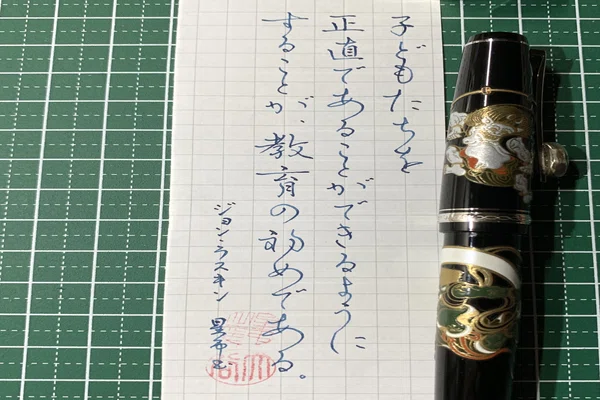 子どもたちを
正直であることができるように
することが、教育の初めである。
ジョン・ラスキン